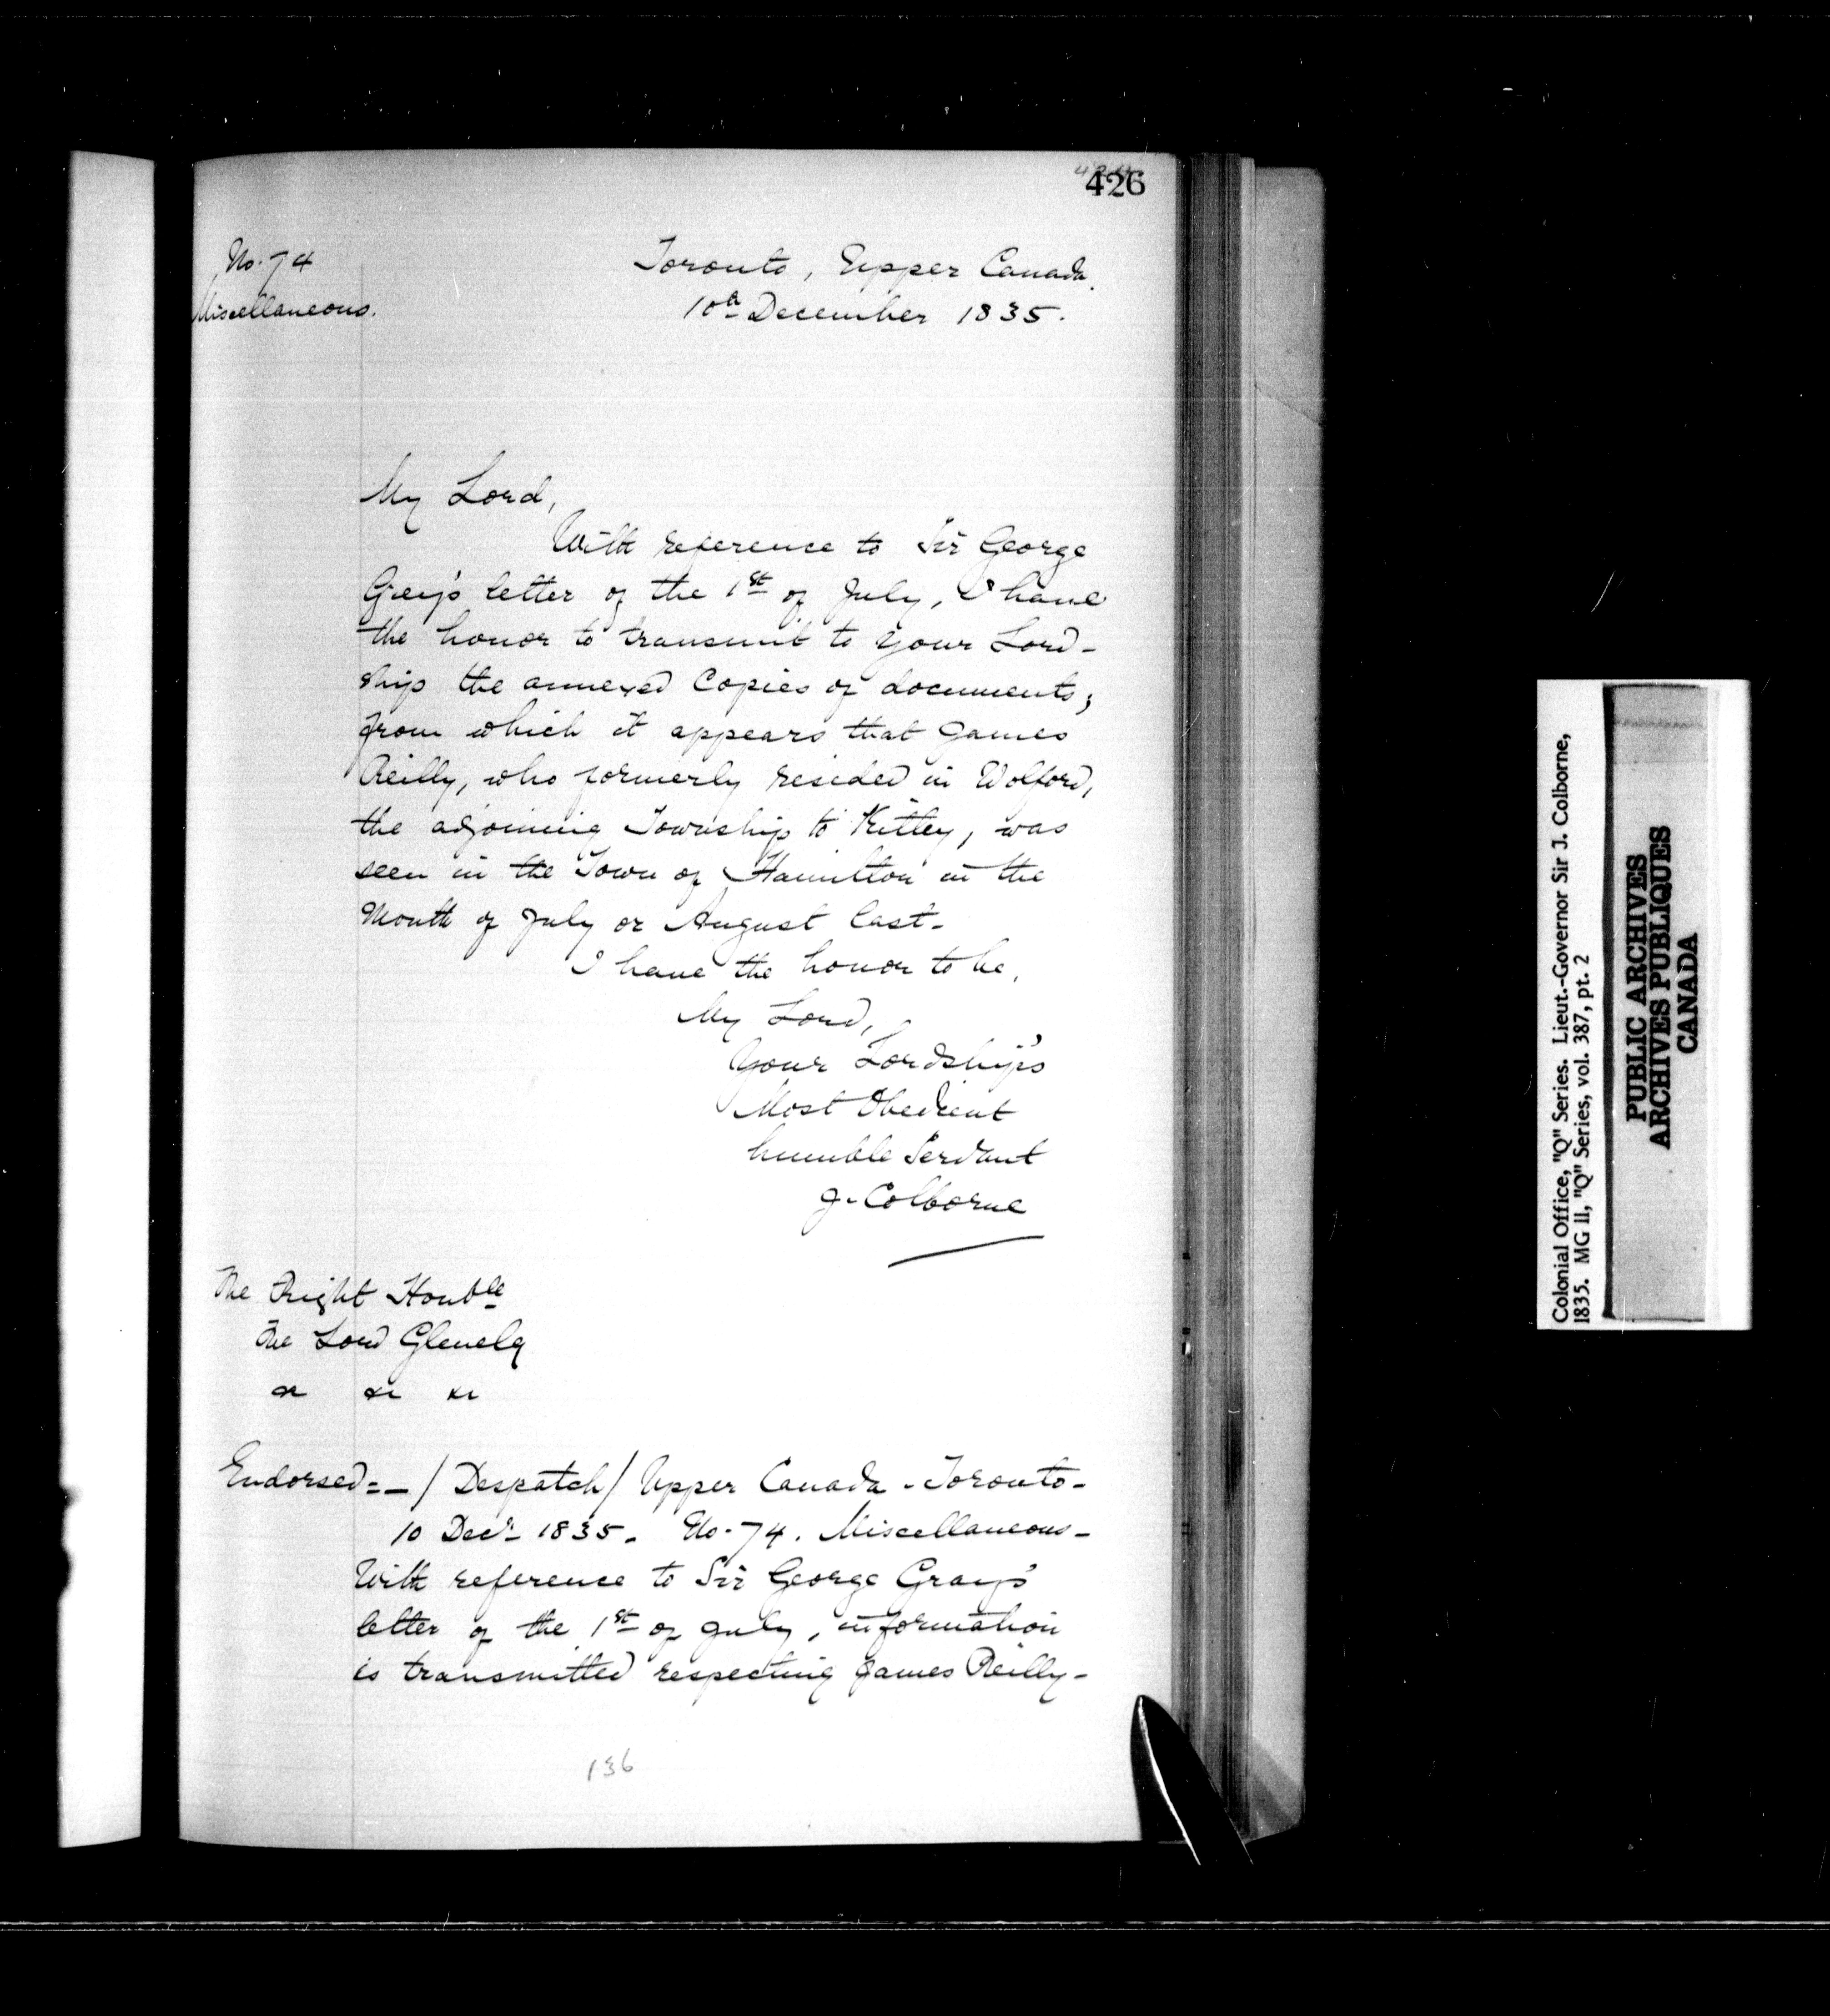 426
No. 74
Miscellaneous.
Toronto, Upper Canada.
10th December 1835.
My Lord,
With reference to Sir George
Grey's letter of the 1st of July, I have
the honor to transmit to your Lord-
ship the annexed Copies of documents;
from which it appears that James
Reilly, who formerly resided in Wolford,
the adjoining Township to Kitley, was
seen in the Town of Hamilton in the
Month of July or August last-
I have the honor to be,
My Lord,
Your Lordship's
Most Obedient
humble Servant
J. Colborne
The Right Honble
The Lord Glenelg
&c &c &c
Endorsed=-/Despatch/Upper Canada-Toronto-
10 Decr 1835. No. 74. Miscellaneous-
With reference to Sir George Gray's
letter of the 1st of July, information
is transmitted respecting James Reilly-
136
Colonial Office, "Q" Series. Lieut.-Governor Sir J. Colborne,
1835. MG 11, "Q" Series, vol. 387, pt. 2
PUBLIC ARCHIVES
ARCHIVES PUBLIQUES
CANADA